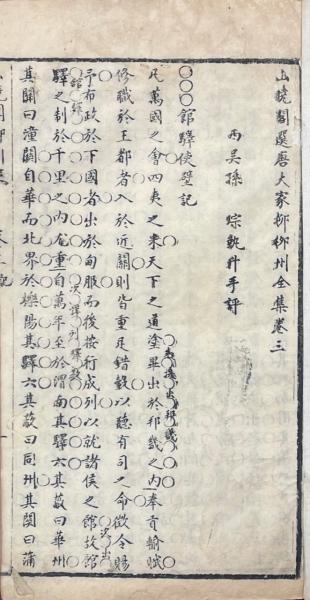 山曉閣選唐大家柳柳州全集卷三
西吳孫琮執升手評
館驛使壁記
凡萬國之會四夷之來天下之道塗畢出於邦畿之內奉貢輸賦
先提出邦畿
修職於王都者入於近關則皆重足錯轂以聽有司之命徵令賜
予布政於下國者出於甸服而後按行成列以就諸侯之館故館
次出
館驛
驛之制於千里之內尤重自萬年至於渭南其驛六其蔽曰華州
次詳列驛數
其關曰潼關自華而北界於櫟陽其驛六其蔽曰同州其關曰蒲